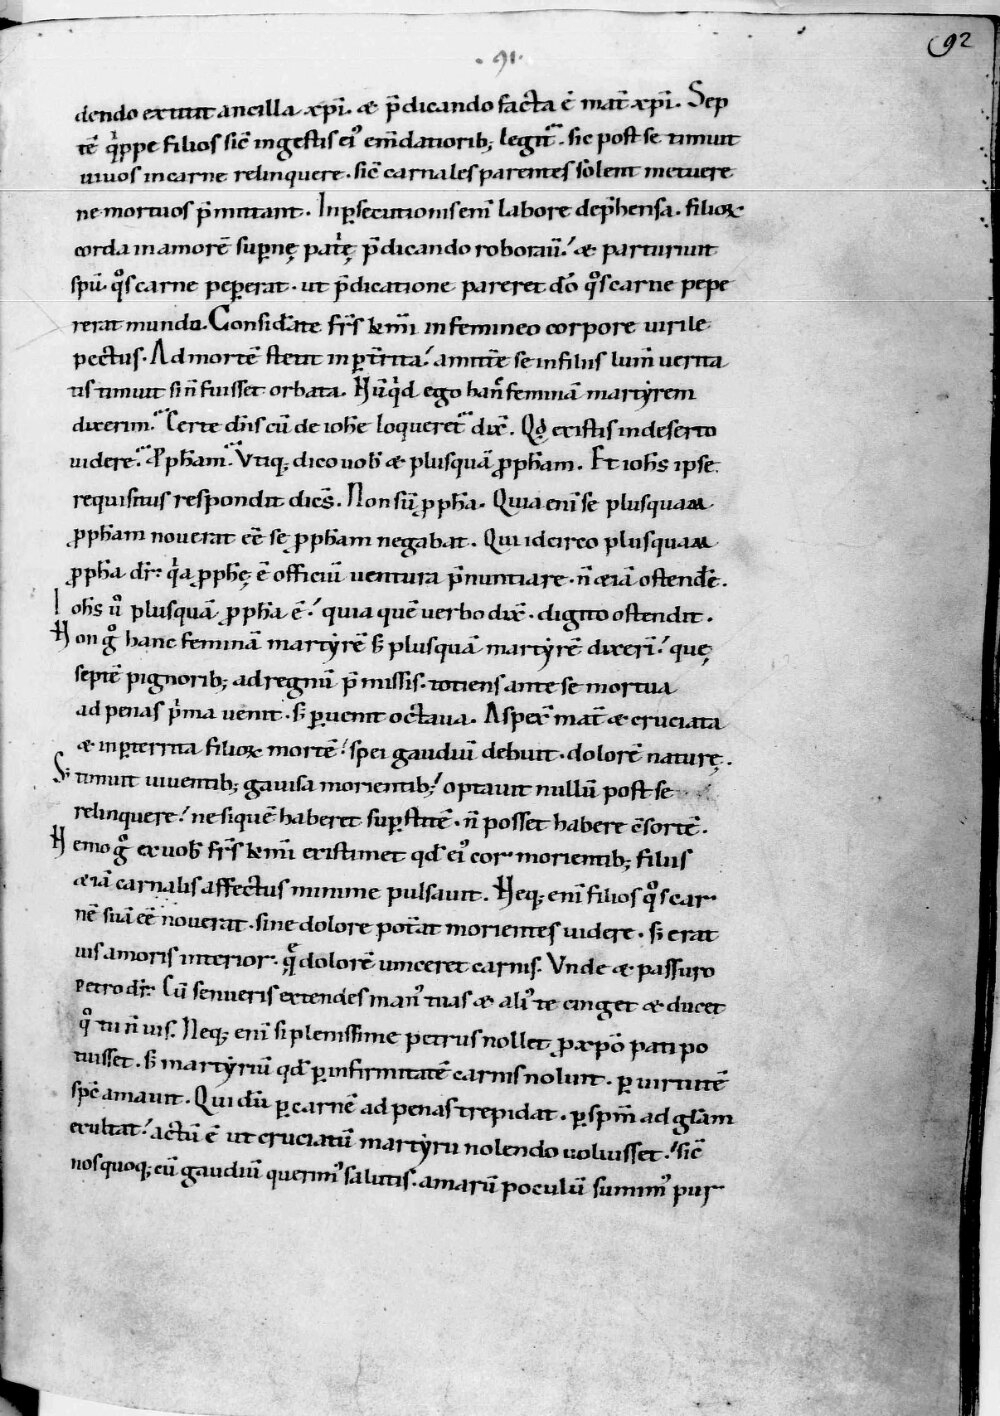 92
· 91 ·
dendo extitit ancilla xp̄i. & p̄dicando facta ē mat̄ xp̄i. Sep
tē q̍ppe filios sic̄ in gestis ei᾽ em̄datiorib; legit̄. sic post se timuit
uiuos in carne relinquere. sic̄ carnales parentes solent metuere
ne mortuos p̄mittant. In p̱secutionis eni labore dep̄hensa. filioꝝ
corda in amorē sup̱nę patrię p̄dicando roborauit: & parturiuit
spū. q̊s carne pep̱erat. ut p̄dicatione pareret dō q̊s carne pepe
rerat mundo. Considerate fr̄s km̄i in femineo corpore uirile
pectus. Ad mortē stetit inp̱t̄rita. amittere se in filiis lum̄ uerita
tis timuit si n̄ fuisset orbata. Nūq̍d ego hanc feminā martẏrem
dixerim. Certe dn̄s cū de ioh̄e loqueret̄ dix̄. Qd̄ existis in deserto
uidere. P̱ph̄am. Vtiq; dico uob̄ & plusquā p̱ph̄am. Et ioh̄s ipse
requisitus respondit dicēs. Non sū p̱ph̄a. Quia eni se plusquam
p̱ph̄am nouerat eē se p̱ph̄am negabat. Qui idcirco plusquam
p̱ph̄a dr̄. q̍a p̱ph̄ę ē officiū uentura p̄nuntiare. n̄ &iā ostend̄e.
Ioh̄s ū plusquā p̱ph̄a ē: quia quē uerbo dix̄. digito ostendit.
Non g̊ hanc feminā martẏrē s; plusquā martẏrē dixerī: quę
septē pignorib; ad regnū p̄missis. totiens ante se mortua
ad penas p̍ma uenit. s; p̱uenit octaua. Aspex̄ mat̄ & cruciata
& inp̱territa filioꝝ mortē: spei gaudiū debuit. dolorē naturę.
S; timuit uiuentib; gauisa morientib;: optauit nullū post se
relinquere: ne siquē haberet sup̱stitē. n̄ posset habere c̄sortē.
Nemo g̊ ex uob̄ fr̄s km̄i existimet qd̄ ei᾽ cor morientib; filiis
&iā carnalis affectus minime pulsauit. Neq; eni filios q̊s car
nē suā eē nouerat. sine dolore pot̄at morientes uidere. s; erat
uis amoris interior. quę dolorē uinceret carnis. Vnde & passuro
petro dr̄. Cū senueris extendes man᾽ tuas & ali᾽ te cinget & ducet
q̊ tu n̄ uis. Neq; eni si plenissime petrus nollet p̱ xp̄o pati po
tuisset. s; martẏriū qd̄ p̱ infirmitatē carnis noluit. p̱ uirtutē
sp̄c amauit. Qui dū p̱ carnē ad penas trepidat. p̱ spm̄ ad gl̄am
exultat: actū ē ut cruciatū martẏrii nolendo uoluisset. sic̄
nos quoq; cū gaudiū querim᾽ salutis. amarū poculū sumim᾽ pur